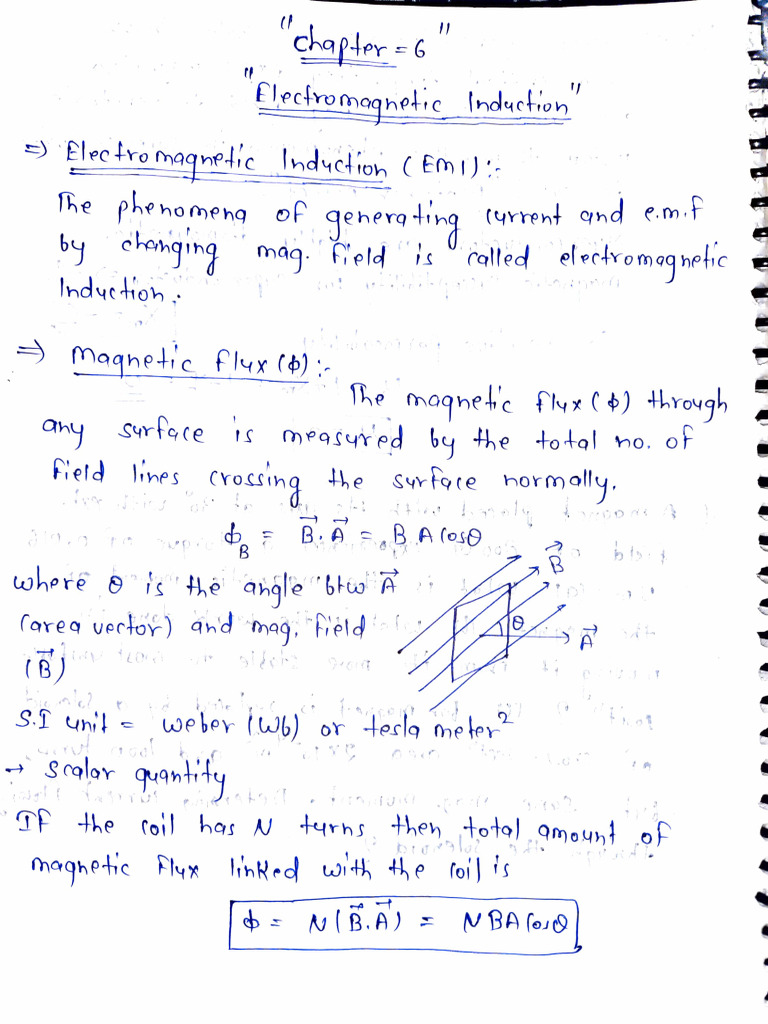 "Chapter = 6"
"Electromagnetic Induction"
⇒ Electromagnetic Induction (EMI):-
The phenomena of generating current and e.m.f
by changing mag. field is called electromagnetic
Induction.
⇒ Magnetic flux (ϕ):-
The magnetic flux (ϕ) through
any surface is measured by the total no. of
field lines crossing the surface normally.
ϕ_B = B⃗.A⃗ = BA cosθ
B⃗
where θ is the angle btw A⃗
(area vector) and mag. field
θ
A⃗
(B⃗)
S.I unit = weber (Wb) or tesla meter²
→ Scalar quantity
If the coil has N turns then total amount of
magnetic flux linked with the coil is
ϕ = N(B⃗.A⃗) = NBA cosθ